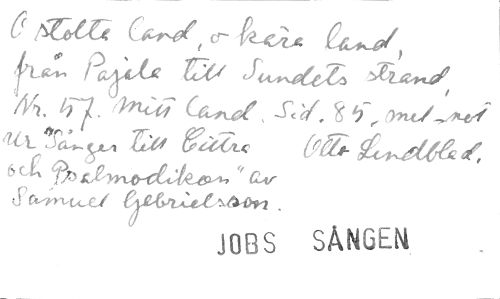 O stolta land, o kära land,
från Pajala till Sundets strand,
Nr. 57. Mitt land. Sid. 85, mel-not
Ur "Sånger till Cittra Otto Lindblad.
och Psalmodikon" av
Samuel Gebrielsson.
JOBS SÅNGEN